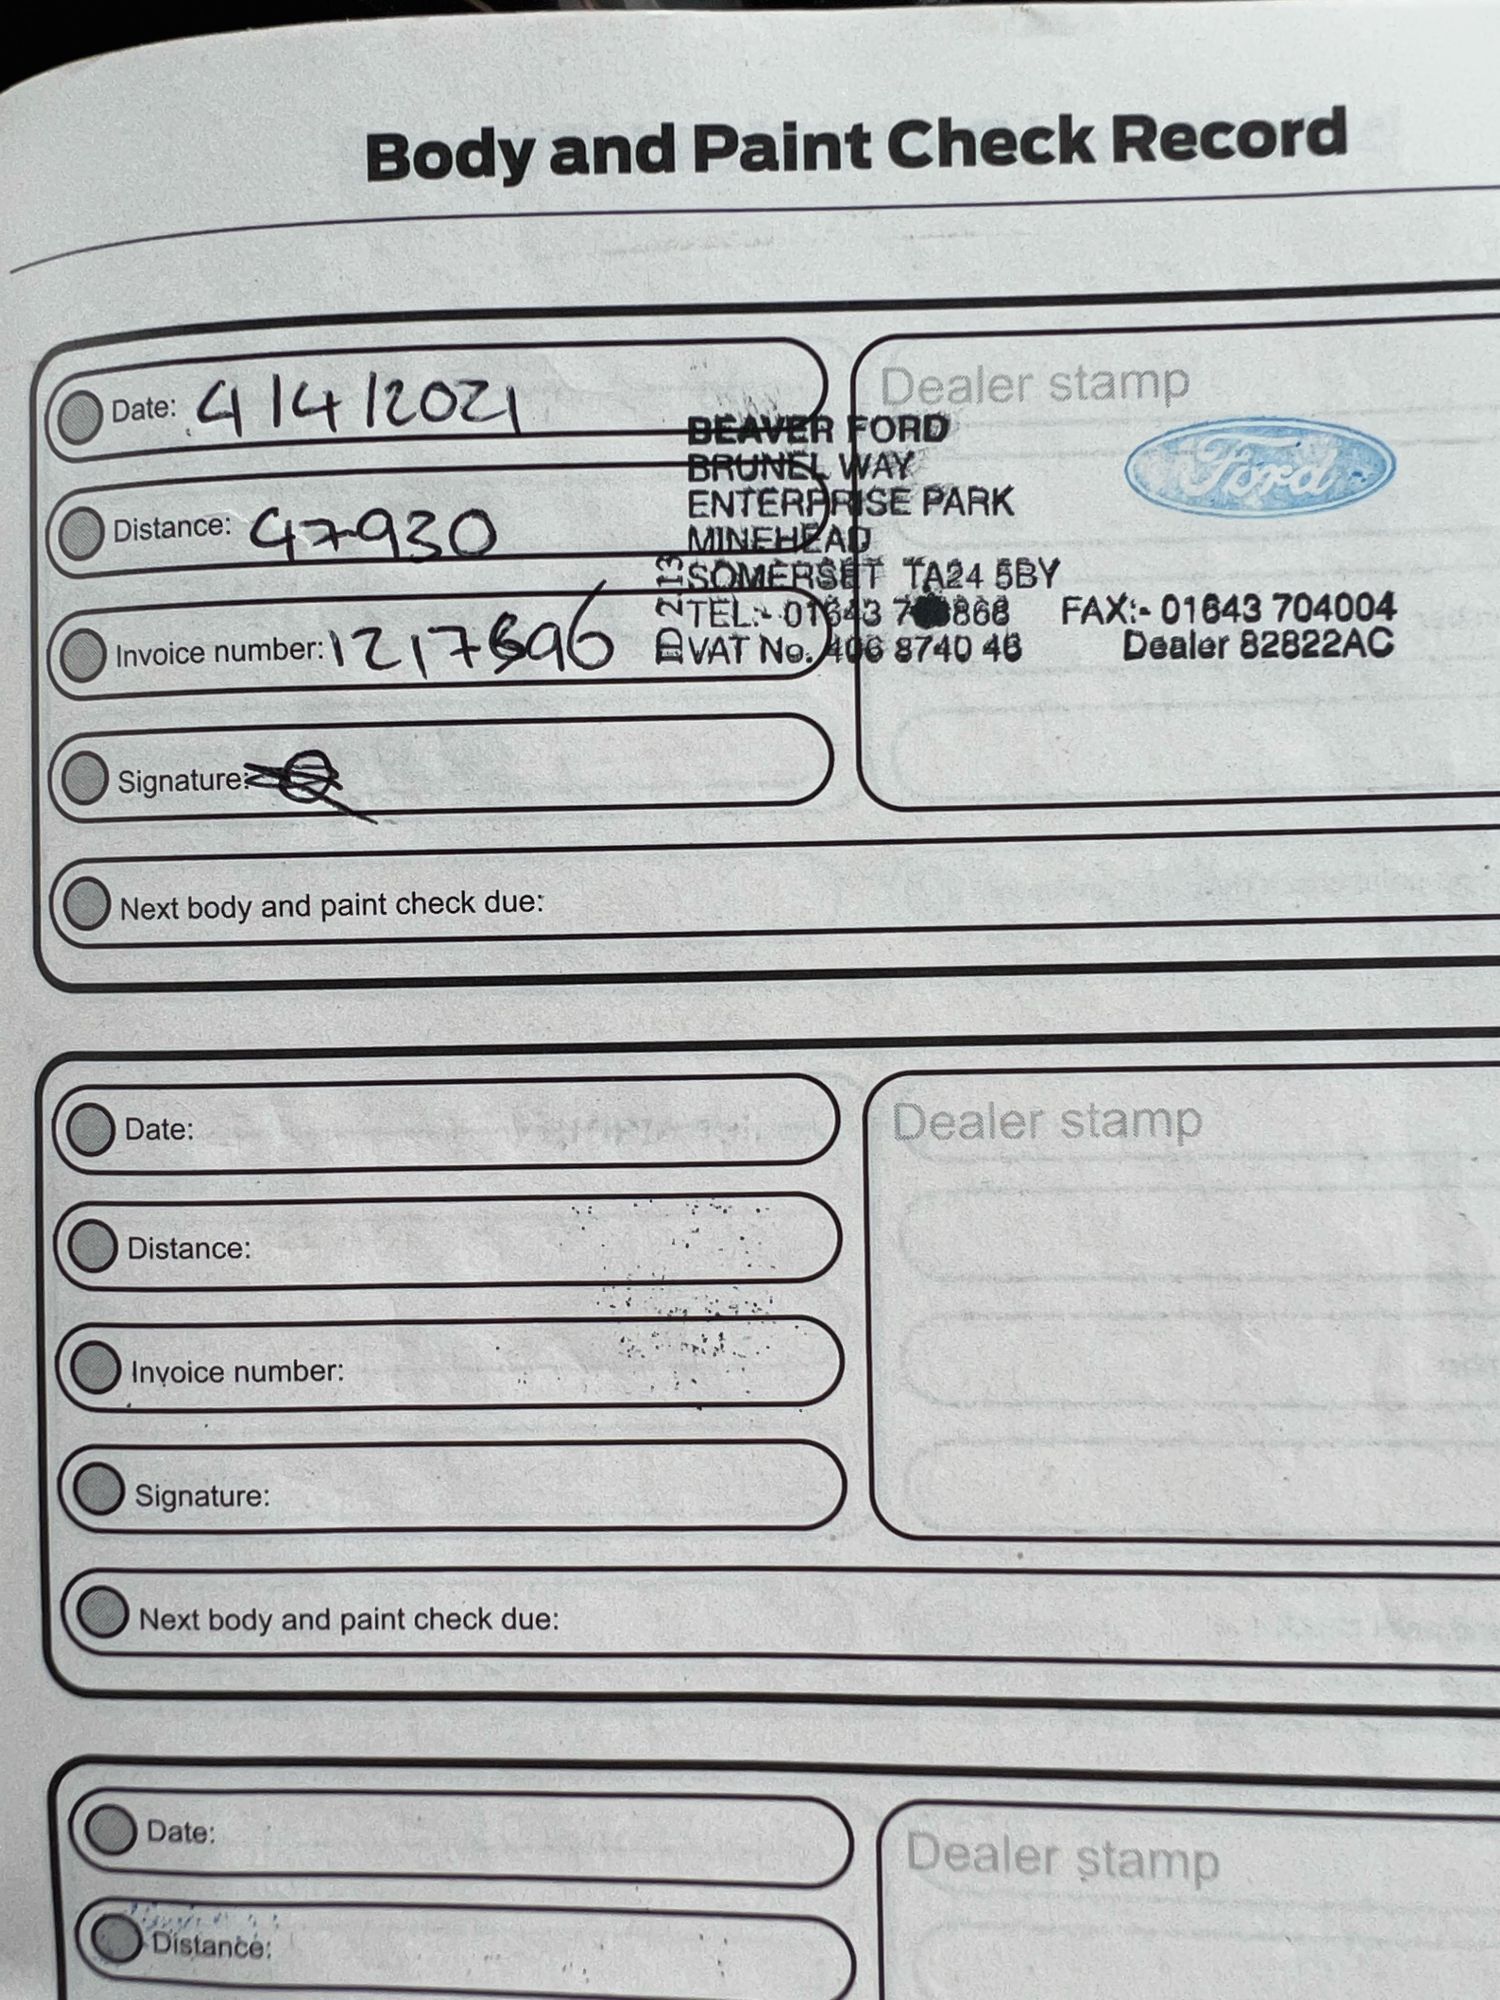 Body and Paint Check Record
Date: 4/4/2021
Distance: 47930
Invoice number:
Signature:
Dealer stamp
BEAVER FORD
BRUNEL WAY
ENTERPRISE PARK
MINEHEAD
SOMERSET TA24 5BY
TEL:- 01643 FAX:- 01643 704004
VAT No. 406 8740 46 Dealer 82822AC
Ford
Next body and paint check due:
Date:
Distance:
Invoice number:
Signature:
Dealer stamp
Next body and paint check due:
Date:
Distance:
Dealer stamp